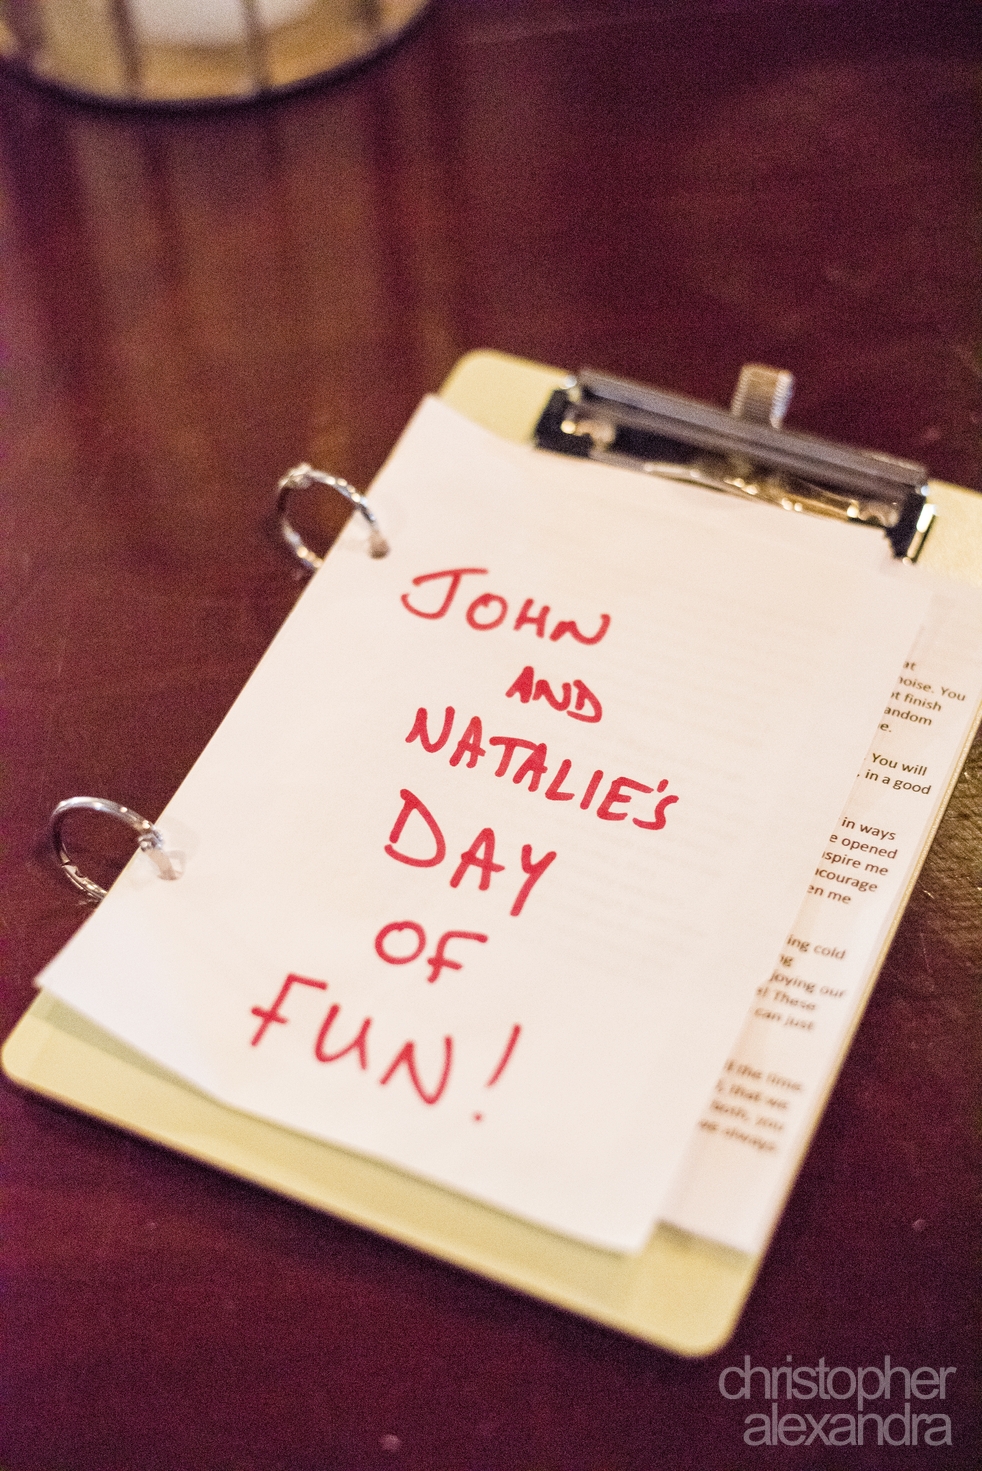 JOHN
AND
NATALIE'S
DAY
OF
FUN!
at
noise. You
finish
andom
e.
. You will
. in a good
in ways
e opened
spire me
courage
en me
ing cold
ng
joying our
! These
can just
the time.
, that we
both, you
always
christopher
alexandra